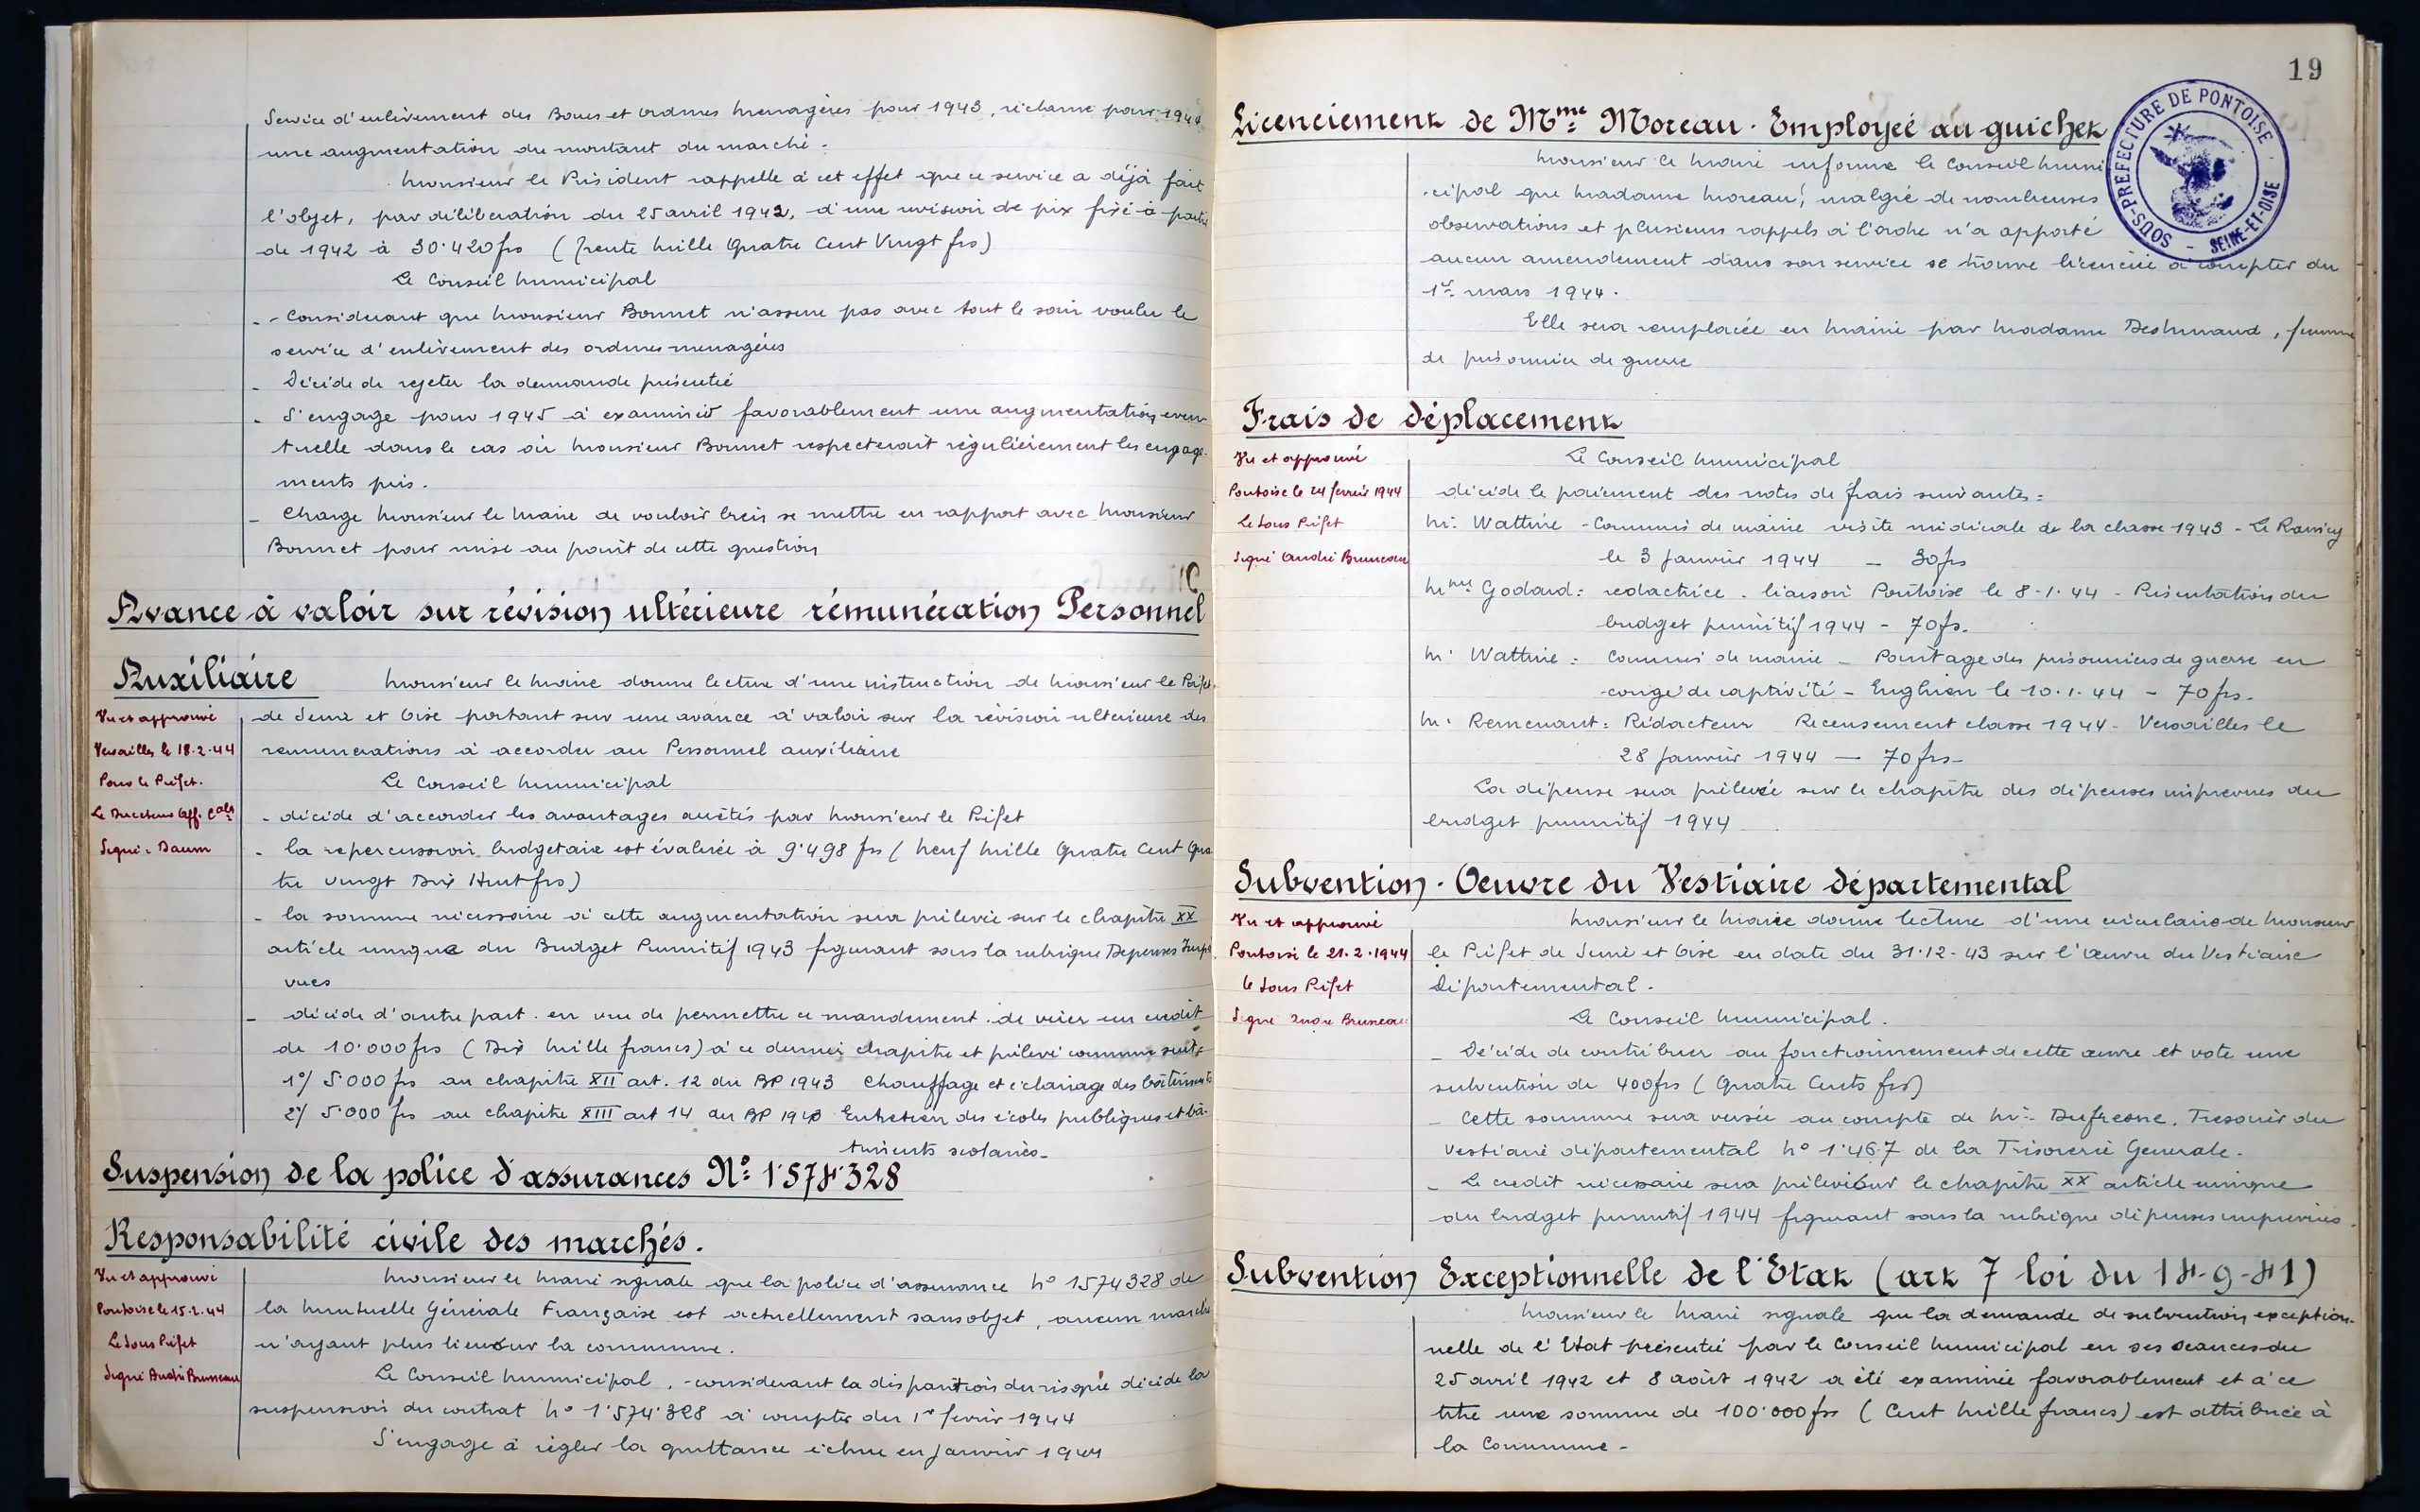 Service d'enlèvement des Boues et ordures ménagères pour 1943, réclame pour 1944
une augmentation du montant du marché.
Monsieur le Président rappelle à cet effet que ce service a déjà fait
l'objet, par délibération du 25 avril 1942, d'une revision de prix fixé à partir
de 1942 à 30.420 frs (Trente Mille Quatre Cent Vingt frs)
Le Conseil Municipal
- Considérant que Monsieur Bonnet n'assure pas avec tout le soin voulu le
service d'enlèvement des ordures ménagères
- Décide de rejeter la demande présentée
- S'engage pour 1945 à examiner favorablement une augmentation éven
tuelle dans le cas où Monsieur Bonnet respecterait régulièrement les engage-
ments pris.
- Charge Monsieur le Maire de vouloir bien se mettre en rapport avec Monsieur
Bonnet pour mise au point de cette question
Avance à valoir sur révision ultérieure rémunération Personnel
Auxiliaire
Monsieur le Maire donne lecture d'une instruction de Monsieur le Préfet
de Seine et Oise portant sur une avance à valoir sur la révision ultérieure des
rémunérations à accorder au Personnel auxiliaire
Le Conseil Municipal
- décide d'accorder les avantages arrêtés par Monsieur le Préfet
- la repercussion budgetaire est évaluée à 9.498 frs (Neuf Mille Quatre Cent Qua
tre Vingt Dix Huit frs)
- la somme nécessaire à cette augmentation sera prélevée sur le chapitre XX
article unique du Budget Primitif 1943 figurant sous la rubrique Depenses Impré
vues
- décide d'autre part. en vue de permettre ce mandement. de virer un crédit
de 10.000 frs (Dix Mille francs) à ce dernier chapitre et prélevé comme suit:
1°/ 5.000 frs au chapitre XII art. 12 du BP 1943 Chauffage et éclairage des bâtiments
2°/ 5.000 frs au chapitre XIII art 14 du BP 1943 Entretien des écoles publiques et bâ-
timents scolaires-
Vu et approuvé
Versailles le 18.2.44
Pour le Préfet.
Le Directeur Aff. Cales
Signé: Daum
Suspension de la police d'assurances N°: 1.574.328
Responsabilité civile des marchés.
Monsieur le Maire signale que la police d'assurance N° 1574328 de
la Mutuelle Générale Française est actuellement sans objet, aucun marché
n'ayant plus lieu sur la commune.
Le Conseil Municipal, - considérant la disparition du risque décide la
suspension du contrat N° 1.574.328 à compter du 1er février 1944
S'engage à régler la quittance échue en Janvier 1944
Vu et approuvé
Pontoise le 15.2.44
Le Sous Préfet
Signé André Bruneau
19
SOUS-PREFECTURE DE PONTOISE - SEINE-ET-OISE
Licenciement de Mme Moreau. Employée au guichet
Monsieur le Maire informe le Conseil Muni
-cipal que Madame Moreau, malgré de nombreuses
observations et plusieurs rappels à l'ordre n'a apporté
aucun amendement dans son service se trouve licenciée à compter du
1er mars 1944.
Elle sera remplacée en Mairie par Madame, femme
de prisonnier de guerre
Frais de déplacement
Vu et approuvé
Pontoise le 24 février 1944
Le Sous Préfet
Signé André Bruneau
Le Conseil Municipal
décide le paiement des notes de frais suivantes:
Mr. Wattine - Commis de mairie visite médicale de la classe 1943 - Le Raincy
le 3 Janvier 1944 - 30 frs
Mme Godard: redactrice. liaison Pontoise le 8.1.44 - Présentation du
budget primitif 1944 - 70 frs.
Mr Wattine: Commis de mairie - Pointage des prisonniers de guerre en
congé de captivité - Enghien le 10.1.44 - 70 frs-
Mr. Remenant: Rédacteur Recensement classe 1944 - Versailles le
28 Janvier 1944 - 70 frs-
La dépense sera prélevée sur le chapitre des dépenses imprévues du
budget primitif 1944
Subvention. Oeuvre du Vestiaire départemental
Vu et approuvé
Pontoise le 21.2.1944
le Sous Préfet
Signé André Bruneau
Monsieur le Maire donne lecture d'une circulaire de Monsieur
le Préfet de Seine et Oise en date du 31.12.43 sur l'œuvre du Vestiaire
Départemental.
Le Conseil Municipal.
- Décide de contribuer au fonctionnement de cette œuvre et vote une
subvention de 400 frs (Quatre Cents frs)
- Cette somme sera versée au compte de Mr: Dufresne, Tresorier du
Vestiaire départemental N° 1.467 de la Trésorerie Generale.
- Le crédit nécessaire sera prélevé sur le chapitre XX article unique
du budget primitif 1944 figurant sous la rubrique dépenses imprévues.
Subvention Exceptionnelle de l'Etat (art 7 loi du 14-9-41)
Monsieur le Maire signale que la demande de subvention exception-
nelle de l'Etat présentée par le Conseil Municipal en ses séances du
25 avril 1942 et 8 août 1942 a été examinée favorablement et à ce
titre une somme de 100.000 frs (Cent Mille francs) est attribuée à
la Commune-